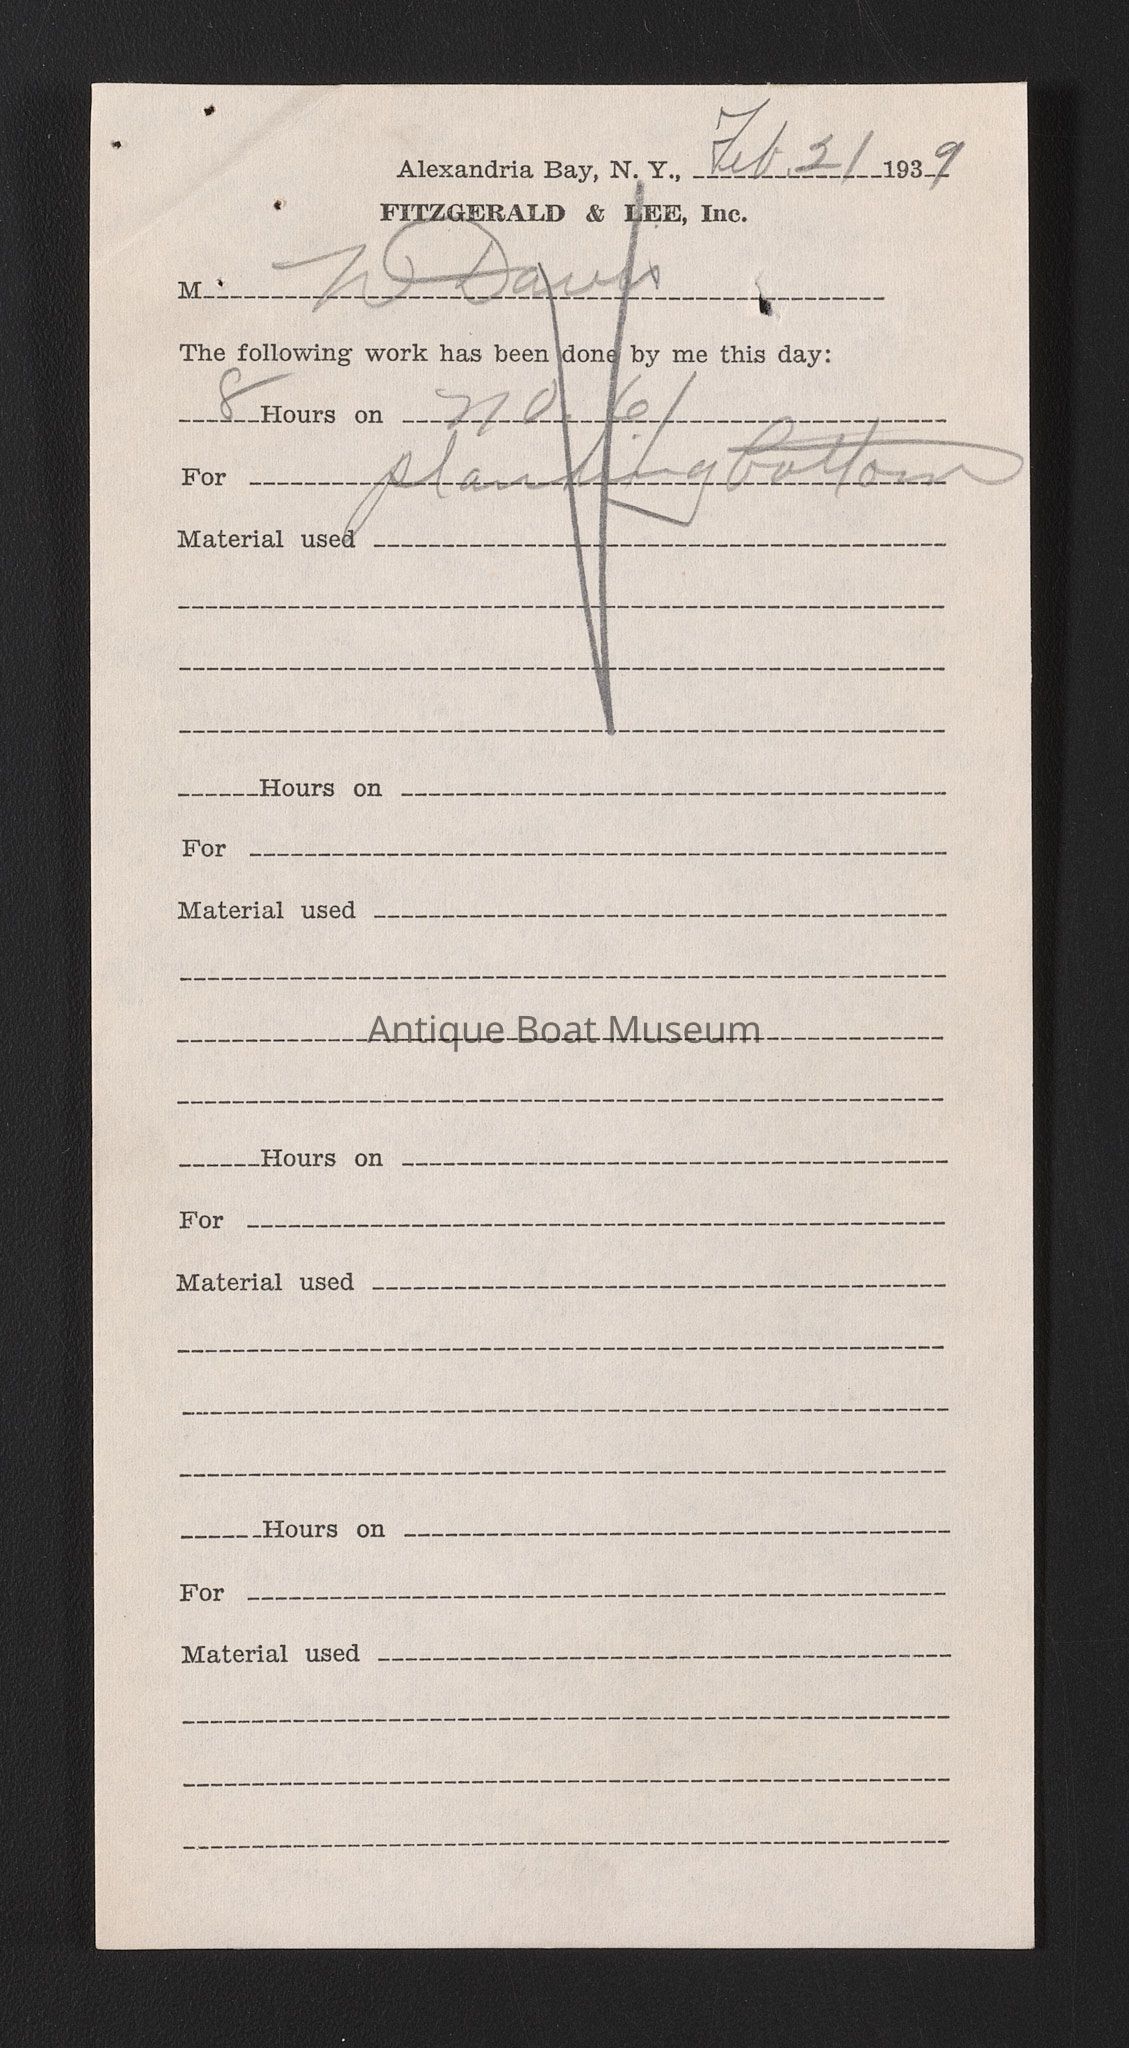 Alexandria Bay, N. Y., Feb. 21 1939
FITZGERALD & LEE, Inc.
M W Davis
The following work has been done by me this day:
8 Hours on no. 61
For planking bottom
Material used
Hours on
For
Material used
Antique Boat Museum
Hours on
For
Material used
Hours on
For
Material used